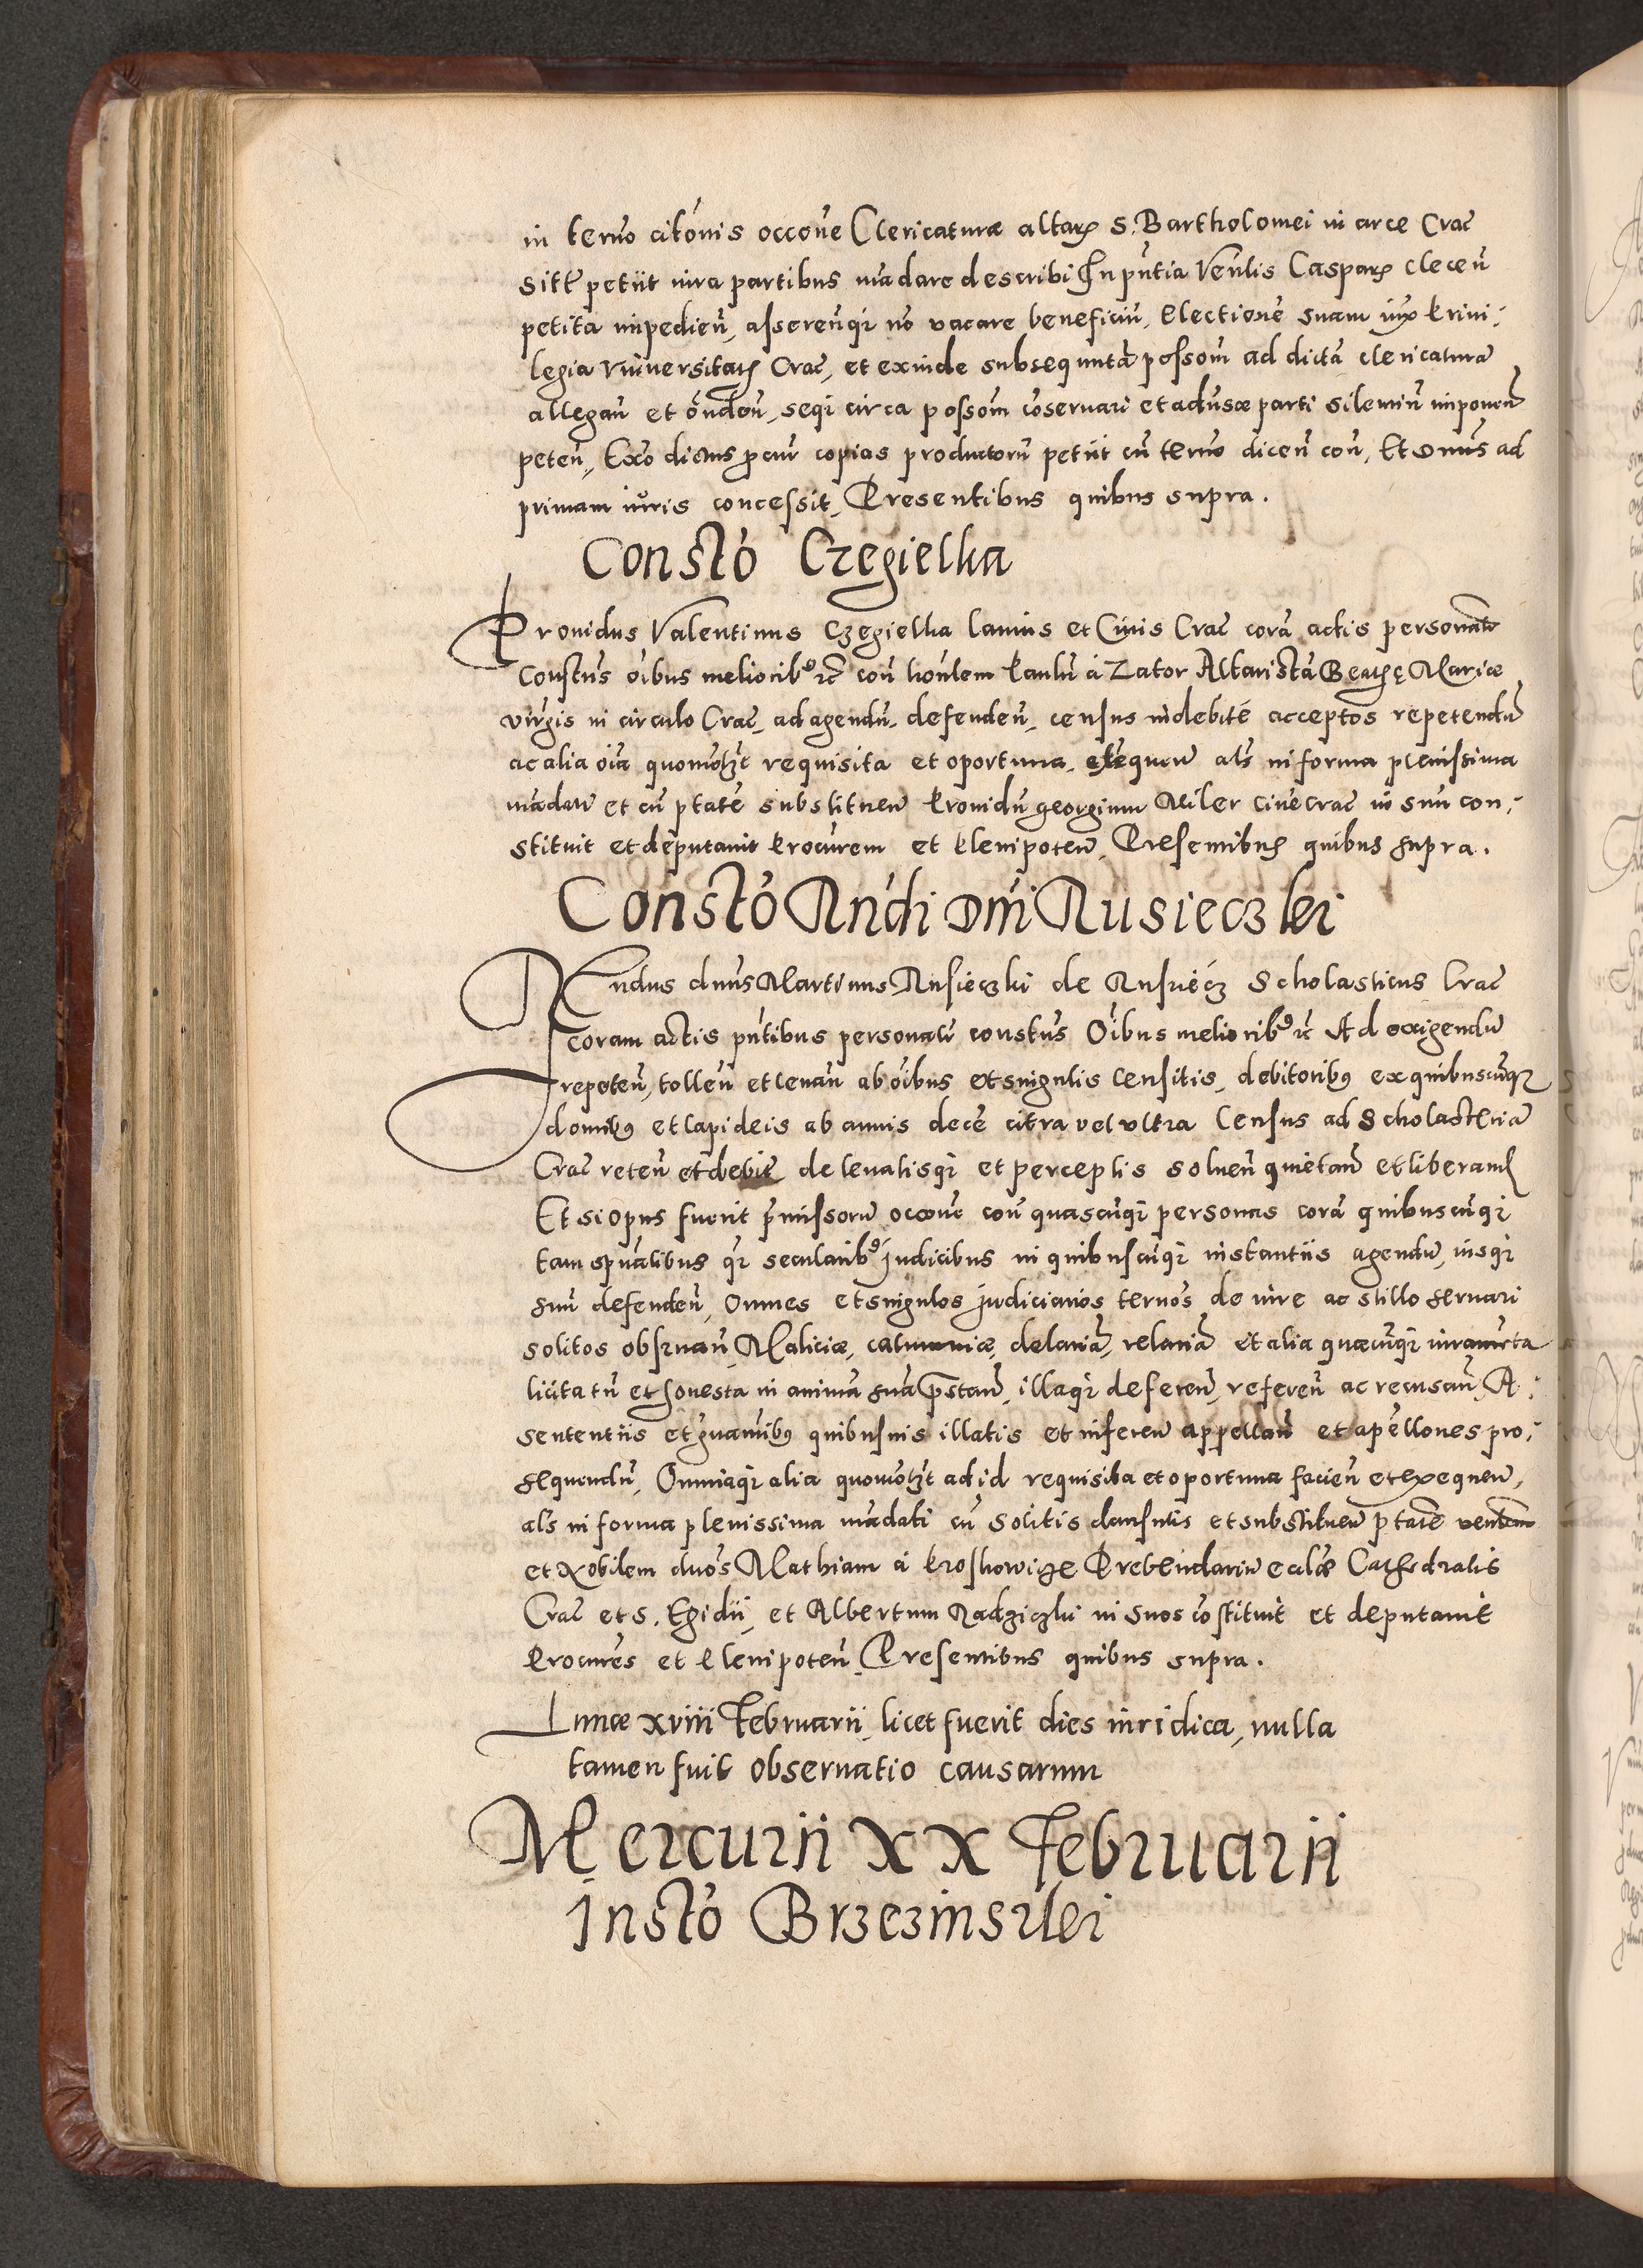 in term̄o citōnis occōne Clericaturæ altar̄ S. Bartholomei in arce Crac̄
sitt̄ petiit iura partibus mādare describi In pn̄tia Ven̄lis Caspar̄ clecen̄
petita impedien̄, asseren̄q; nō vacare beneficiū, Electionē suam iux̄ Privi:
legia Vniversitat̄ Crac̄, et exinde subsequutā possom̄ ad dictā clericaturā
allegan̄ et ōnden̄, seq; circa possom̄ cōservari et adūsæ parti silentiū imponen̄
peten̄, Exō dictus procur̄ copias productorū petiit cū term̄o dicen̄ con̄, Et Dnūs ad
primam iuris concessit, Presentibus quibus supra.
Constō Czegielka
Providus Valentinus Czegielka lanius et Civis Crac̄ corā actis personalr̄
Constūs ōibus meliorib9 rc̄ con̄ honlem Paulū à Zator Altaristā Beatę Mariæ
virgis in circulo Crac̄, ad agendū, defenden̄, census indebitè acceptos repetendū
ac alia ōia quomōlzt requisita et oportuna, exequen̄ als̄ in forma plenissima
mādati et cū ptate substituen̄ Providū georgium Miler civē Crac̄ in suū con:
stituit et deputavit Procurem et Plenipoten̄, Presentibus quibus supra.
Constō Rn̄di Dn̄i Rusieczki
Rn̄dus dnus Martinus Rusieczki de Rusiecz Scholasticus Crac̄
coram actis pn̄tibus personalr̄ constūs Oībus meliorib9 rc̄ Ad exigendū
repeten̄, tollen̄ et levan̄ ab oībus et singulis Censitis, debitorib9 ex quibuscūq;
domib9 et lapideis ab annis decē citra vel vltra Census ad Scholasteriā
Crac̄ reten̄ et debit̄ de levatisq; et perceptis solven̄ quietan̄ et liberand̄
Et si opus fuerit p̄missorū occōne con̄ quascūq; personas corā quibuscūq;
tam spūalibus q; secularib9 judicibus in quibuscūq; instantiis agendū, iusq;
suū defenden̄, Omnes et singulos judiciarios term̄os de iure ac stillo servari
solitos observan̄, Maliciæ, calumniæ, delatiā, relatiā et alia quæcūq; iuramēta
licita tn̄ et honesta in animā suā p̄stan̄, illaq; deferen̄, referen̄ ac recusan̄, A:
sententiis et gvamib9 quibusvis illatis et inferen̄ appellan̄ et apellones pro:
sequendū, Omniaq; alia quomōlzt ad id requisita et oportuna facien̄ et exequen̄,
als̄ in forma plenissima mādati cū solitis clausulis et substituen̄ ptate
et Nobilem dnōs Mathiam à Kroskowicze Prebendariū eccliæ Cathedralis
Crac̄ et S. Egidii, et Albertum Radziczki in suos cōstituit et deputavit
Procures et Plenipoten̄, Presentibus quibus supra.
Lunæ xviii Februarii, licet fuerit dies iuridica, nulla
tamen fuit observatio causarum
Mercurii XX Februarii
Instō Brzezinski